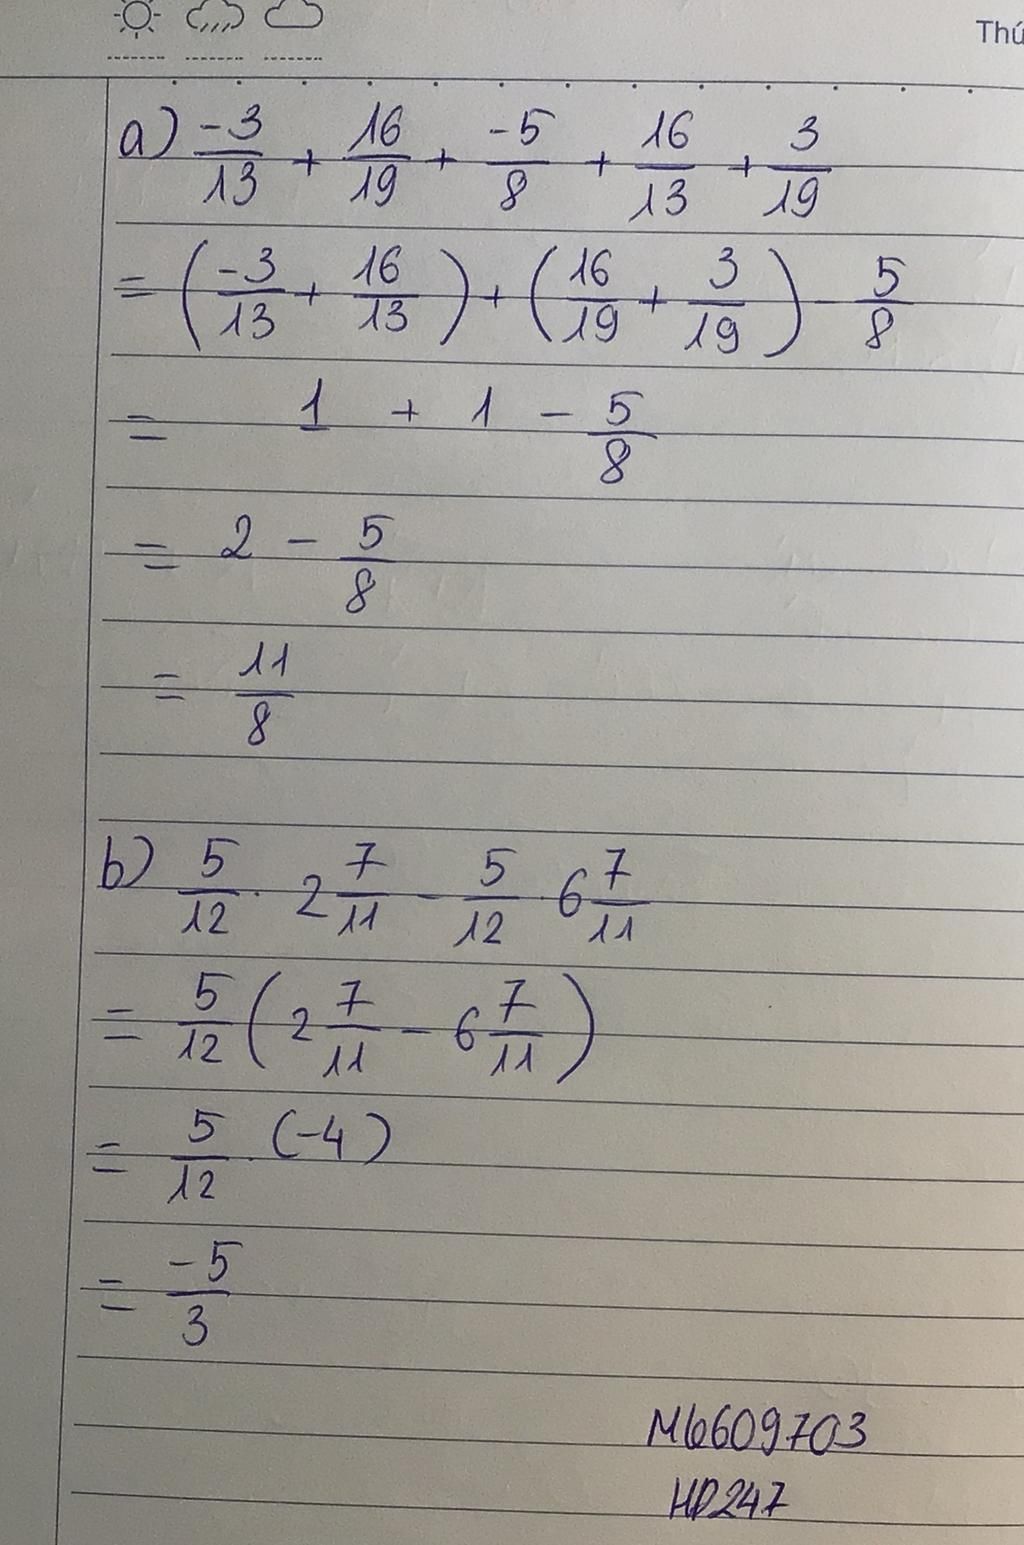 Thứ
a) -3/13 + 16/19 + -5/8 + 16/13 + 3/19
= (-3/13 + 16/13) + (16/19 + 3/19) - 5/8
= 1 + 1 - 5/8
= 2 - 5/8
= 11/8
b) 5/12 . 2 7/11 - 5/12 . 6 7/11
= 5/12 (2 7/11 - 6 7/11)
= 5/12 . (-4)
= -5/3
M6609703
HD247